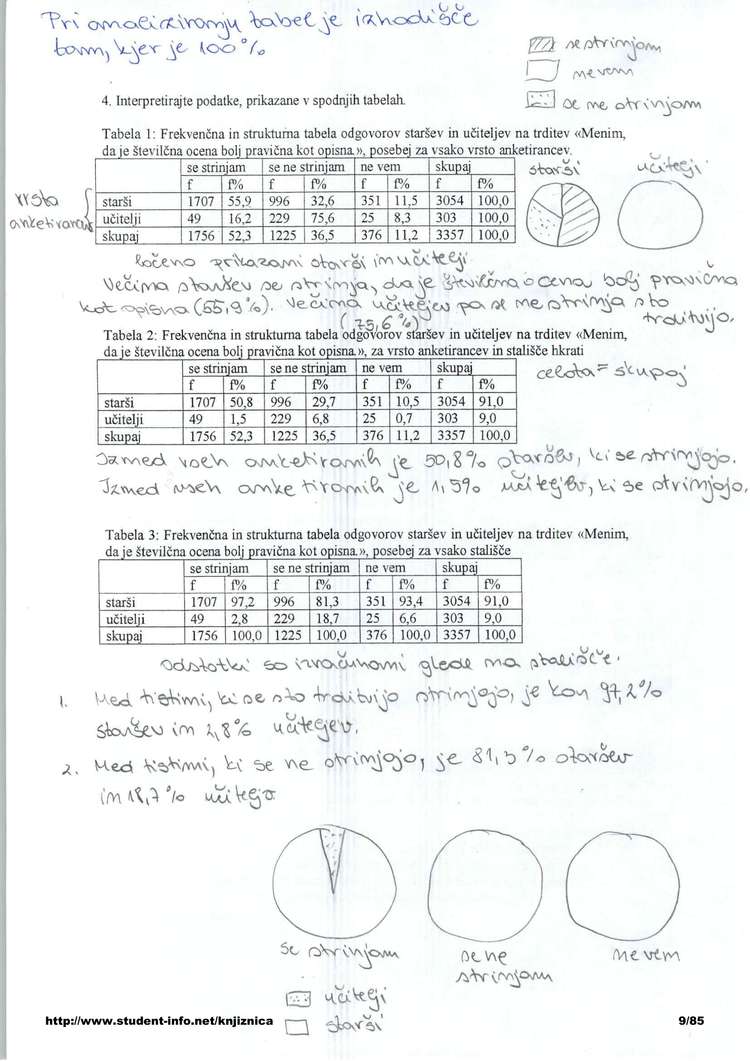 Pri analiziranju tabel je izhodišče
tam, kjer je 100%
se strinjam
ne vem
se ne strinjam
4. Interpretirajte podatke, prikazane v spodnjih tabelah.
Tabela 1: Frekvenčna in strukturna tabela odgovorov staršev in učiteljev na trditev «Menim,
da je številčna ocena bolj pravična kot opisna.», posebej za vsako vrsto anketirancev.
se strinjam se ne strinjam ne vem skupaj
f f% f f% f f% f f%
starši 1707 55,9 996 32,6 351 11,5 3054 100,0
učitelji 49 16,2 229 75,6 25 8,3 303 100,0
skupaj 1756 52,3 1225 36,5 376 11,2 3357 100,0
vrsta
starši
učitelji
ločeno prikazani starši in učitelji.
Večina staršev se strinja, da je številčna ocena bolj pravična
kot opisna (55,9%). Večina učiteljev pa se ne strinja s to
trditvijo.
(75,6%)
Tabela 2: Frekvenčna in strukturna tabela odgovorov staršev in učiteljev na trditev «Menim,
da je številčna ocena bolj pravična kot opisna.», za vrsto anketirancev in stališče hkrati
se strinjam se ne strinjam ne vem skupaj
f f% f f% f f% f f%
starši 1707 50,8 996 29,7 351 10,5 3054 91,0
učitelji 49 1,5 229 6,8 25 0,7 303 9,0
skupaj 1756 52,3 1225 36,5 376 11,2 3357 100,0
celota = skupaj
Izmed vseh anketiranih je 50,8% staršev, ki se strinjajo.
Izmed vseh anketiranih je 1,5% učiteljev, ki se strinjajo.
Tabela 3: Frekvenčna in strukturna tabela odgovorov staršev in učiteljev na trditev «Menim,
da je številčna ocena bolj pravična kot opisna.», posebej za vsako stališče
se strinjam se ne strinjam ne vem skupaj
f f% f f% f f% f f%
starši 1707 97,2 996 81,3 351 93,4 3054 91,0
učitelji 49 2,8 229 18,7 25 6,6 303 9,0
skupaj 1756 100,0 1225 100,0 376 100,0 3357 100,0
Odstotki so izračunani glede na stališče.
1. Med tistimi, ki se s to trditvijo strinjajo, je kar 97,2%
staršev in 2,8% učiteljev.
2. Med tistimi, ki se ne strinjajo, je 81,3% staršev
in 18,7%
se strinjam
se ne
strinjam
ne vem
učitelji
starši
http://www.student-info.net/knjiznica
9/85